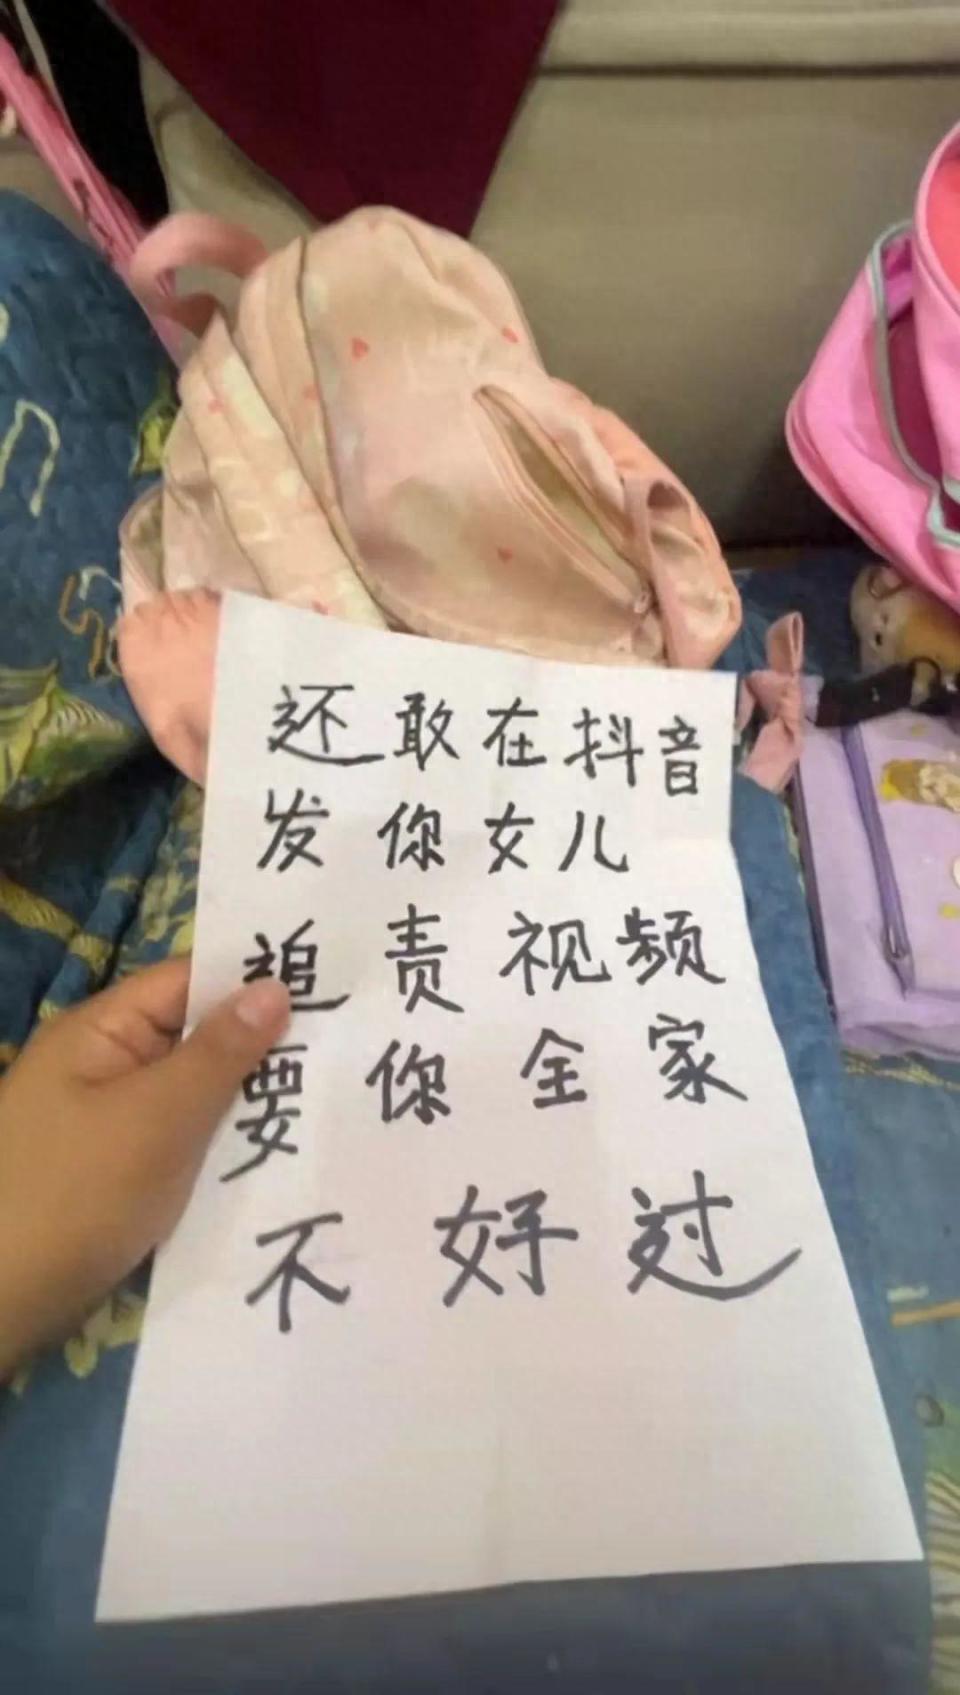 还敢在抖音
发你女儿
追责视频
要你全家
不好过